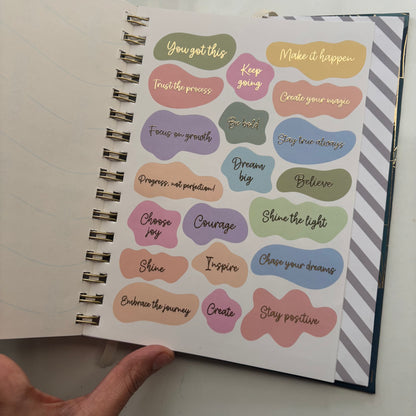 You got this
Keep
going
Make it happen
Trust the process
Create your magic
Focus on growth
Be bold
Stay true always
Dream
big
Progress, not perfection!
Believe
Choose
joy
Courage
Shine the light
Shine
Inspire
Chase your dreams
Embrace the journey
Create
Stay positive